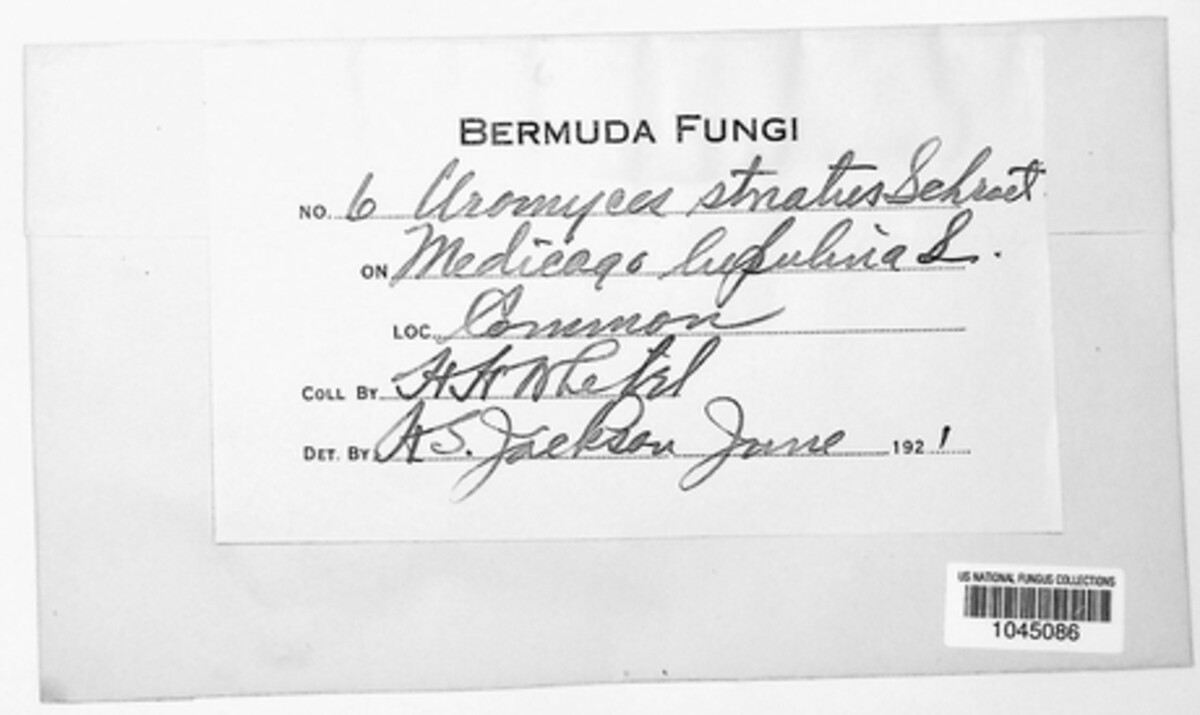 BERMUDA FUNGI
NO. 6 Uromyces striatus Schroet.
ON Medicago lupulina L.
LOC. Common
COLL BY H H Whetzel
DET. BY H S. Jackson June 1921
US NATIONAL FUNGUS COLLECTIONS
1045086